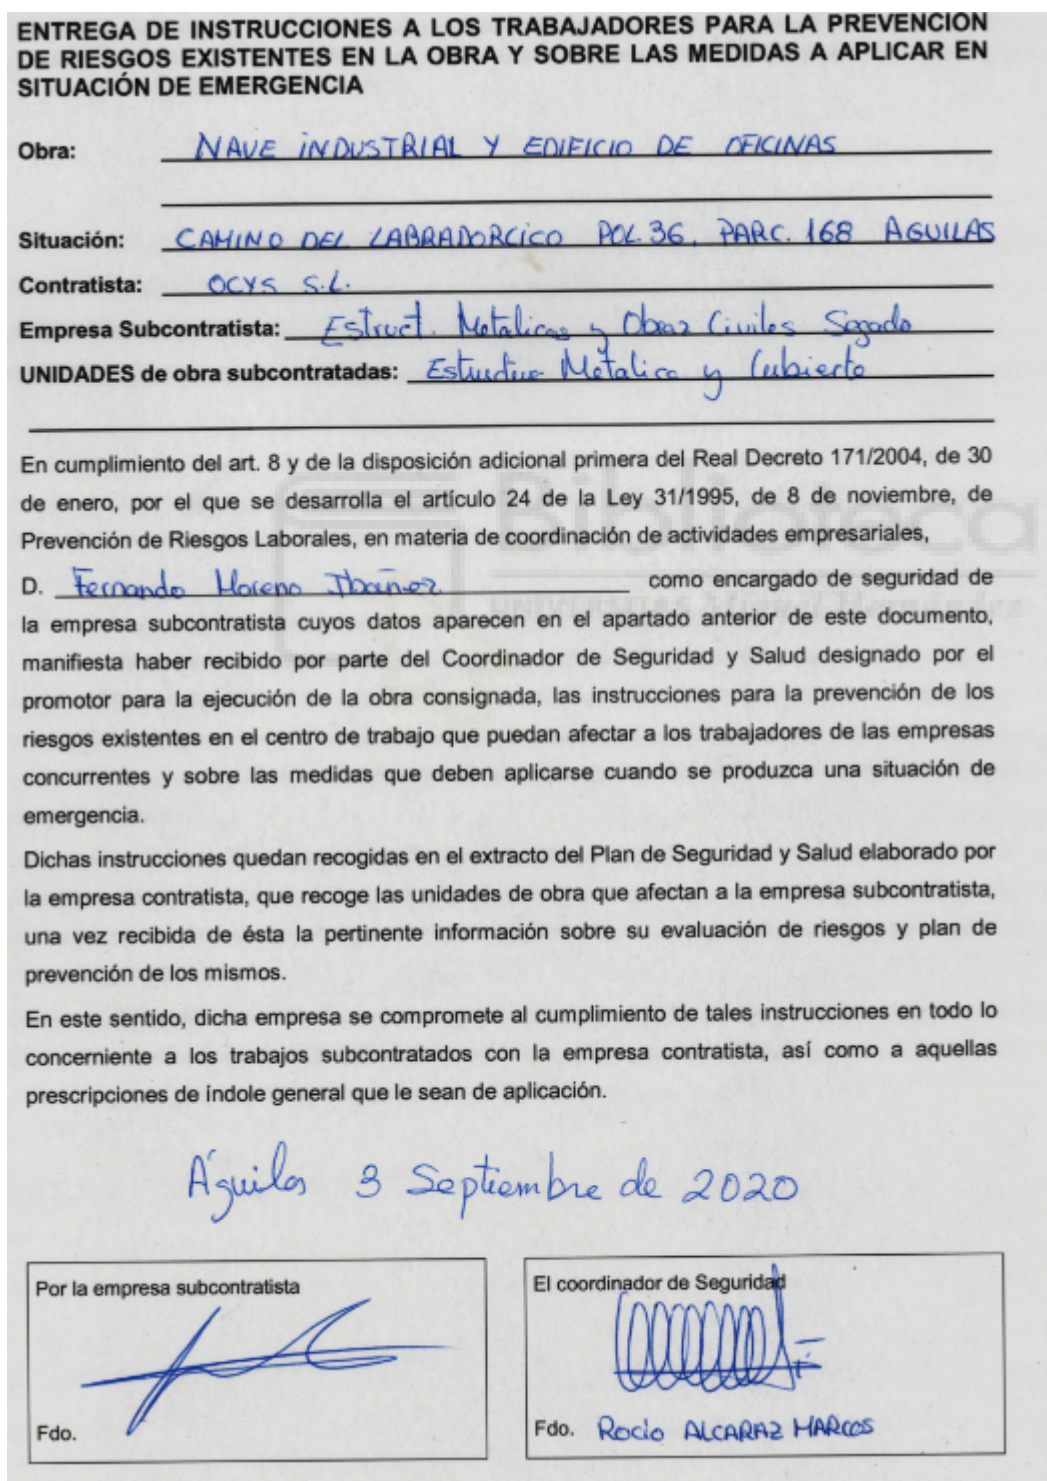 ENTREGA DE INSTRUCCIONES A LOS TRABAJADORES PARA LA PREVENCIÓN
DE RIESGOS EXISTENTES EN LA OBRA Y SOBRE LAS MEDIDAS A APLICAR EN
SITUACIÓN DE EMERGENCIA
Obra: NAVE INDUSTRIAL Y EDIFICIO DE OFICINAS
Situación: CAMINO DEL LABRADORCICO POL. 36, PARC. 168 AGUILAS
Contratista: OCYS S.L.
Empresa Subcontratista: Estruct. Metalicas y Obras Civiles Segado
UNIDADES de obra subcontratadas: Estructura Metalica y Cubierta
En cumplimiento del art. 8 y de la disposición adicional primera del Real Decreto 171/2004, de 30
de enero, por el que se desarrolla el artículo 24 de la Ley 31/1995, de 8 de noviembre, de
Prevención de Riesgos Laborales, en materia de coordinación de actividades empresariales,
D. Fernando Moreno Ibañez como encargado de seguridad de
la empresa subcontratista cuyos datos aparecen en el apartado anterior de este documento,
manifiesta haber recibido por parte del Coordinador de Seguridad y Salud designado por el
promotor para la ejecución de la obra consignada, las instrucciones para la prevención de los
riesgos existentes en el centro de trabajo que puedan afectar a los trabajadores de las empresas
concurrentes y sobre las medidas que deben aplicarse cuando se produzca una situación de
emergencia.
Dichas instrucciones quedan recogidas en el extracto del Plan de Seguridad y Salud elaborado por
la empresa contratista, que recoge las unidades de obra que afectan a la empresa subcontratista,
una vez recibida de ésta la pertinente información sobre su evaluación de riesgos y plan de
prevención de los mismos.
En este sentido, dicha empresa se compromete al cumplimiento de tales instrucciones en todo lo
concerniente a los trabajos subcontratados con la empresa contratista, así como a aquellas
prescripciones de índole general que le sean de aplicación.
Águilas 3 Septiembre de 2020
Por la empresa subcontratista
Fdo.
El coordinador de Seguridad
Fdo. Rocío ALCARAZ MARCOS
Biblioteca
UNIVERSITAS Miguel Hernández